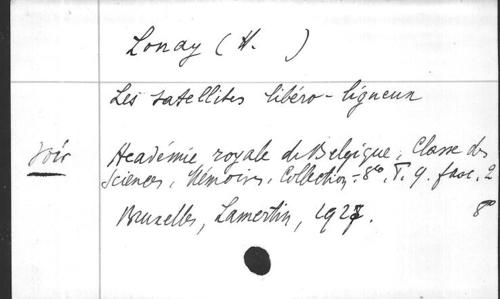 Lonay (H. )
Les satellites libéro-ligneux
voir Académie royale de Belgique, Classe des
Sciences, Mémoires, Collection-8º, T. 9. fasc. 2
Bruxelles, Lamertin, 1927. 8º